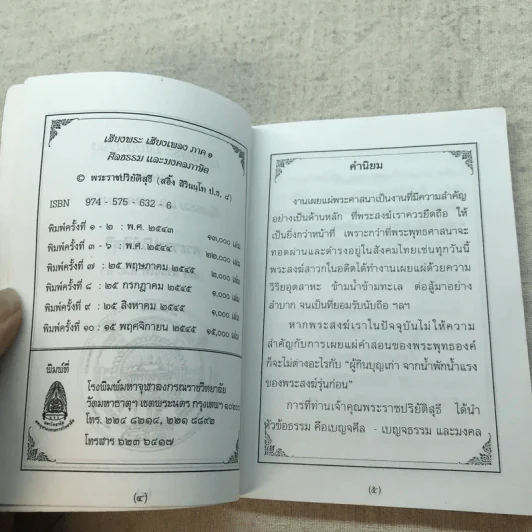 เสียงพระ เสียงเพลง ภาค ๑
ศีลธรรม และมงคลภาษิต
© พระราชปริยัติสุธี (สอิ้ง สิรินนฺโท ป.ธ. ๘)
ISBN 974 - 575 - 632 - 6
พิมพ์ครั้งที่ ๑ - ๒ : พ.ศ. ๒๕๔๓ ๑๓,๐๐๐ เล่ม
พิมพ์ครั้งที่ ๓ - ๖ : พ.ศ. ๒๕๔๔ ๒๒,๐๐๐ เล่ม
พิมพ์ครั้งที่ ๗ : ๒๕ พฤษภาคม ๒๕๔๕ ๒,๐๐๐ เล่ม
พิมพ์ครั้งที่ ๘ : ๒๕ กรกฎาคม ๒๕๔๕ ๑,๐๐๐ เล่ม
พิมพ์ครั้งที่ ๙ : ๒๕ สิงหาคม ๒๕๔๕ ๑,๐๐๐ เล่ม
พิมพ์ครั้งที่ ๑๐ : ๑๕ พฤศจิกายน ๒๕๔๕ ๑๕,๐๐๐ เล่ม
พิมพ์ที่
โรงพิมพ์มหาจุฬาลงกรณราชวิทยาลัย
วัดมหาธาตุฯ เขตพระนคร กรุงเทพฯ ๑๐๒๐๐
โทร. ๒๒๔ ๘๒๑๔, ๒๒๑ ๘๘๙๒
โทรสาร ๖๒๓ ๖๔๑๗
(๔)
คำนิยม
งานเผยแผ่พระศาสนาเป็นงานที่มีความสำคัญ
อย่างเป็นด้านหลัก ที่พระสงฆ์เราควรยึดถือ ให้
เป็นยิ่งกว่าหน้าที่ เพราะกว่าที่พระพุทธศาสนาจะ
ทอดผ่านและดำรงอยู่ในสังคมไทยเช่นทุกวันนี้
พระสงฆ์สาวกในอดีตได้ทำงานเผยแผ่ด้วยความ
วิริยอุตสาหะ ข้ามน้ำข้ามทะเล ต่อสู้มาอย่าง
ลำบาก จนเป็นที่ยอมรับนับถือ ฯลฯ
หากพระสงฆ์เราในปัจจุบันไม่ให้ความ
สำคัญกับการเผยแผ่คำสอนของพระพุทธองค์
ก็จะไม่ต่างอะไรกับ "ผู้กินบุญเก่า จากน้ำพักน้ำแรง
ของพระสงฆ์รุ่นก่อน"
การที่ท่านเจ้าคุณพระราชปริยัติสุธี ได้นำ
หัวข้อธรรม คือเบญจศีล - เบญจธรรม และมงคล
(๕)